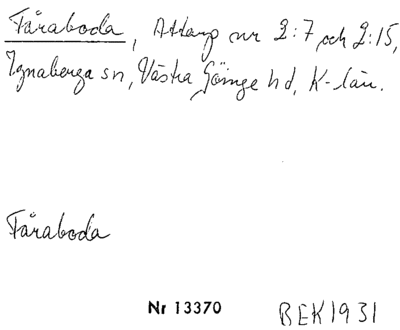 Fåraboda, Attarp nr 2:7 och 2:15,
Ignaberga sn, Västra Göinge hd, K-län.
Fåraboda
Nr 13370 BEK1931